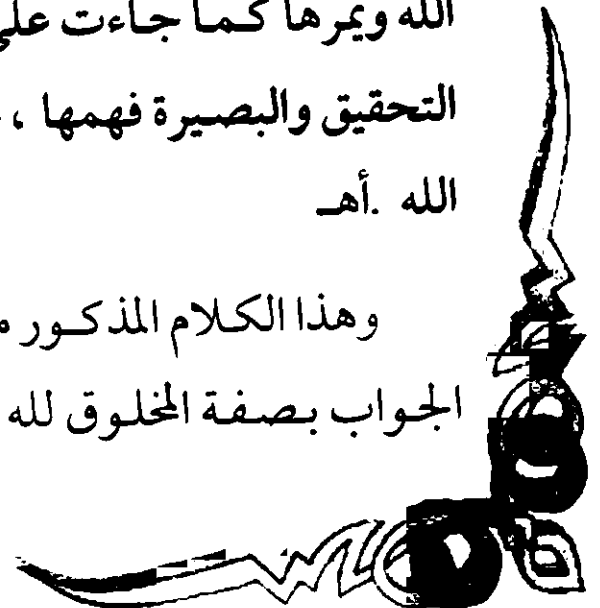 الله ويمرها كما جاءت على
التحقيق والبصيرة فهمها ،
الله .أهـ
وهذا الكلام المذكور
الجواب بصفة المخلوق لله